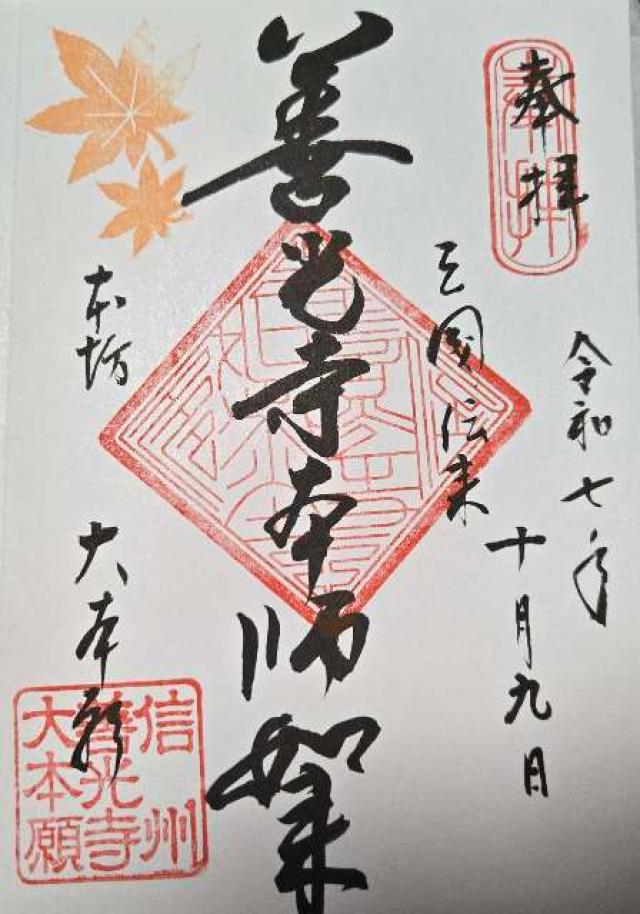 奉拝
令和七年
十月九日
三國伝来
善光寺本師如来
本坊
大本願
信州
善光寺
大本願